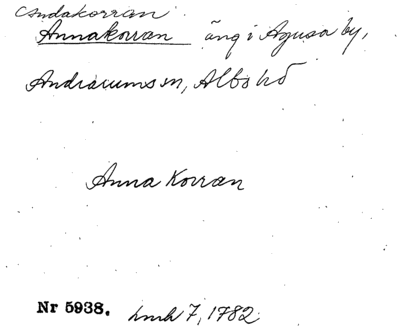 Andakorran
Annakorran äng i Agusa by,
Andrarums sn, Albo hd
Anna Korran
Nr 5938. lmh 7, 1782